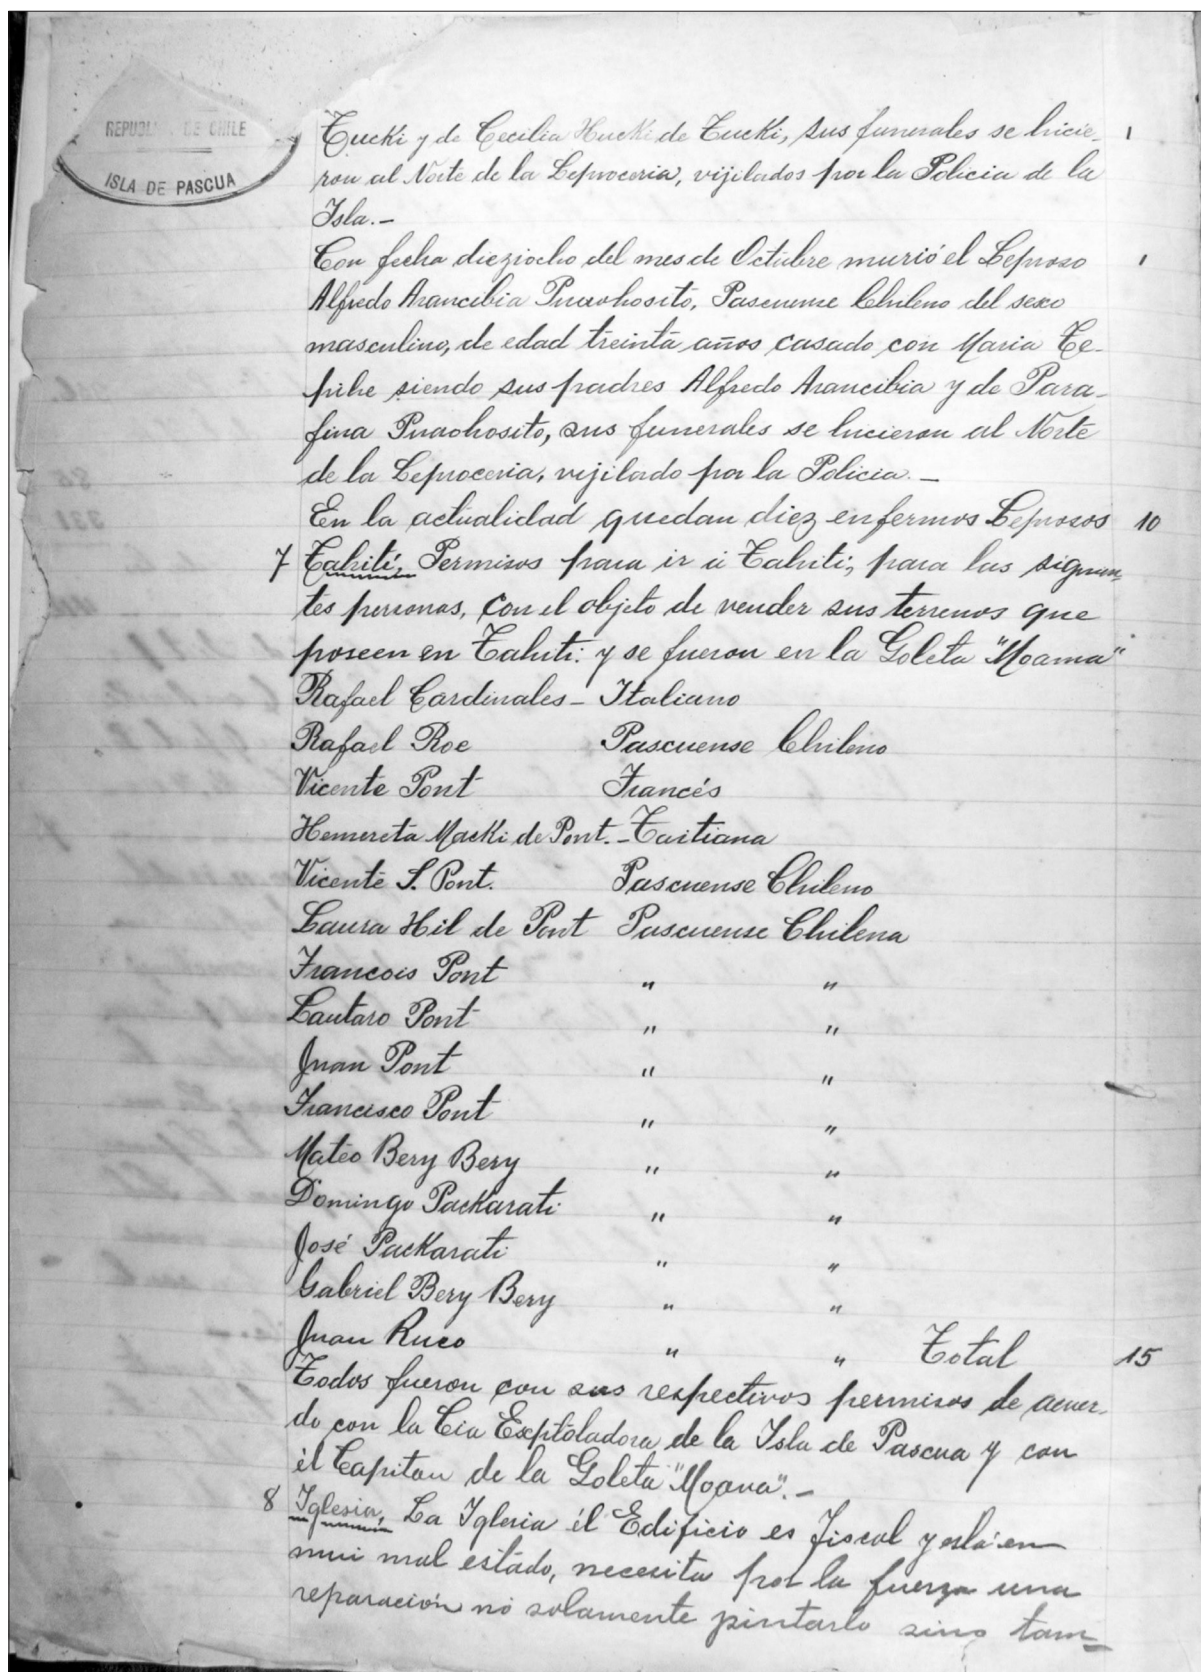 REPUBLICA DE CHILE
ISLA DE PASCUA
Tucki y de Cecilia Hucki de Tucki, sus funerales se hicie- 1
ron al Norte de la Leproceria, vijilados por la Policia de la
Isla.-
Con fecha dieziocho del mes de Octubre murió el Leproso 1
Alfredo Arancibia Puaohosito, Pascuense Chileno del sexo
masculino, de edad treinta años casado con Maria Te-
pihe siendo sus padres Alfredo Arancibia y de Para-
fina Puaohosito, sus funerales se hicieron al Norte
de la Leproceria, vijilado por la Policia.-
En la actualidad quedan diez enfermos Leprosos 10
7 Tahiti, Permisos para ir á Tahiti, para las siguien
tes personas, con el objeto de vender sus terrenos que
poseen en Tahiti: y se fueron en la Goleta "Moama"
Rafael Cardinales - Italiano
Rafael Roe Pascuense Chileno
Vicente Pont Francés
Hemereta Macki de Pont. - Taitiana
Vicente S. Pont. Pascuense Chileno
Laura Hil de Pont Pascuense Chilena
Francois Pont " "
Lautaro Pont " "
Juan Pont " "
Francisco Pont " "
Mateo Bery Bery " "
Domingo Packarati " "
José Packarati " "
Gabriel Bery Bery " "
Juan Ruco " " Total 15
Todos fueron con sus respectivos permisos de acuer-
do con la Cia Exptoladora de la Isla de Pascua y con
él Capitan de la Goleta "Moana".-
8 Iglesia, La Iglesia él Edificio es fiscal y está en
mui mal estado, necesita por la fuerza una
reparación nó solamente pintarlo sino tam-